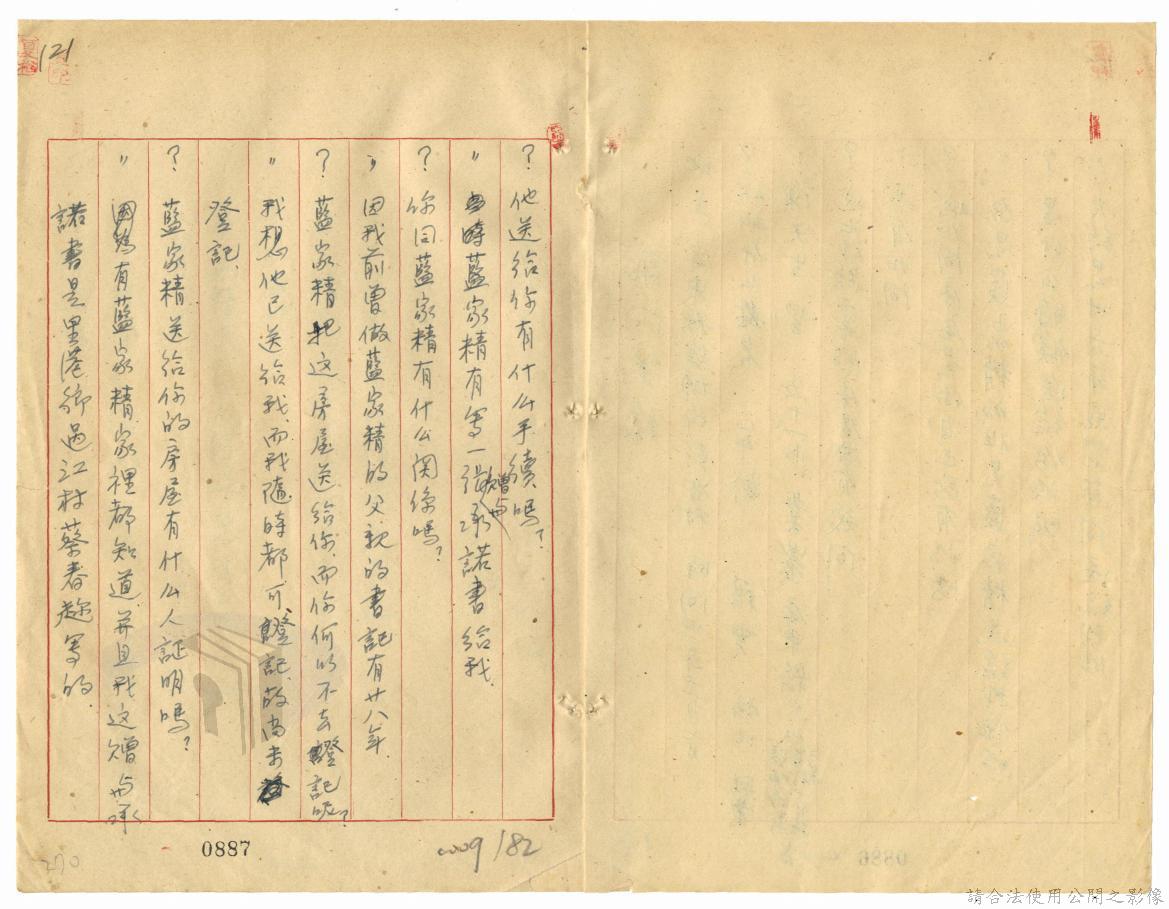 121
? 他送給你有什么手續嗎?
〃 當時藍家精有寫一張贈与承諾書給我.
? 你同藍家精有什么関係嗎?
〃 因我前曾做藍家精的父親的書記有廿八年
? 藍家精把这房屋送給你.而你何以不去登記呢?
〃 我想他已送給我.而我隨時都可登記.故尚未
登記.
? 藍家精送給你的房屋有什么人証明嗎?
〃 因為有藍家精家裡都知道.并且我这贈与承
諾書是里港鄉過江村蔡春趂寫的.
0887
0009/82
270
0886
請合法使用公開之影像